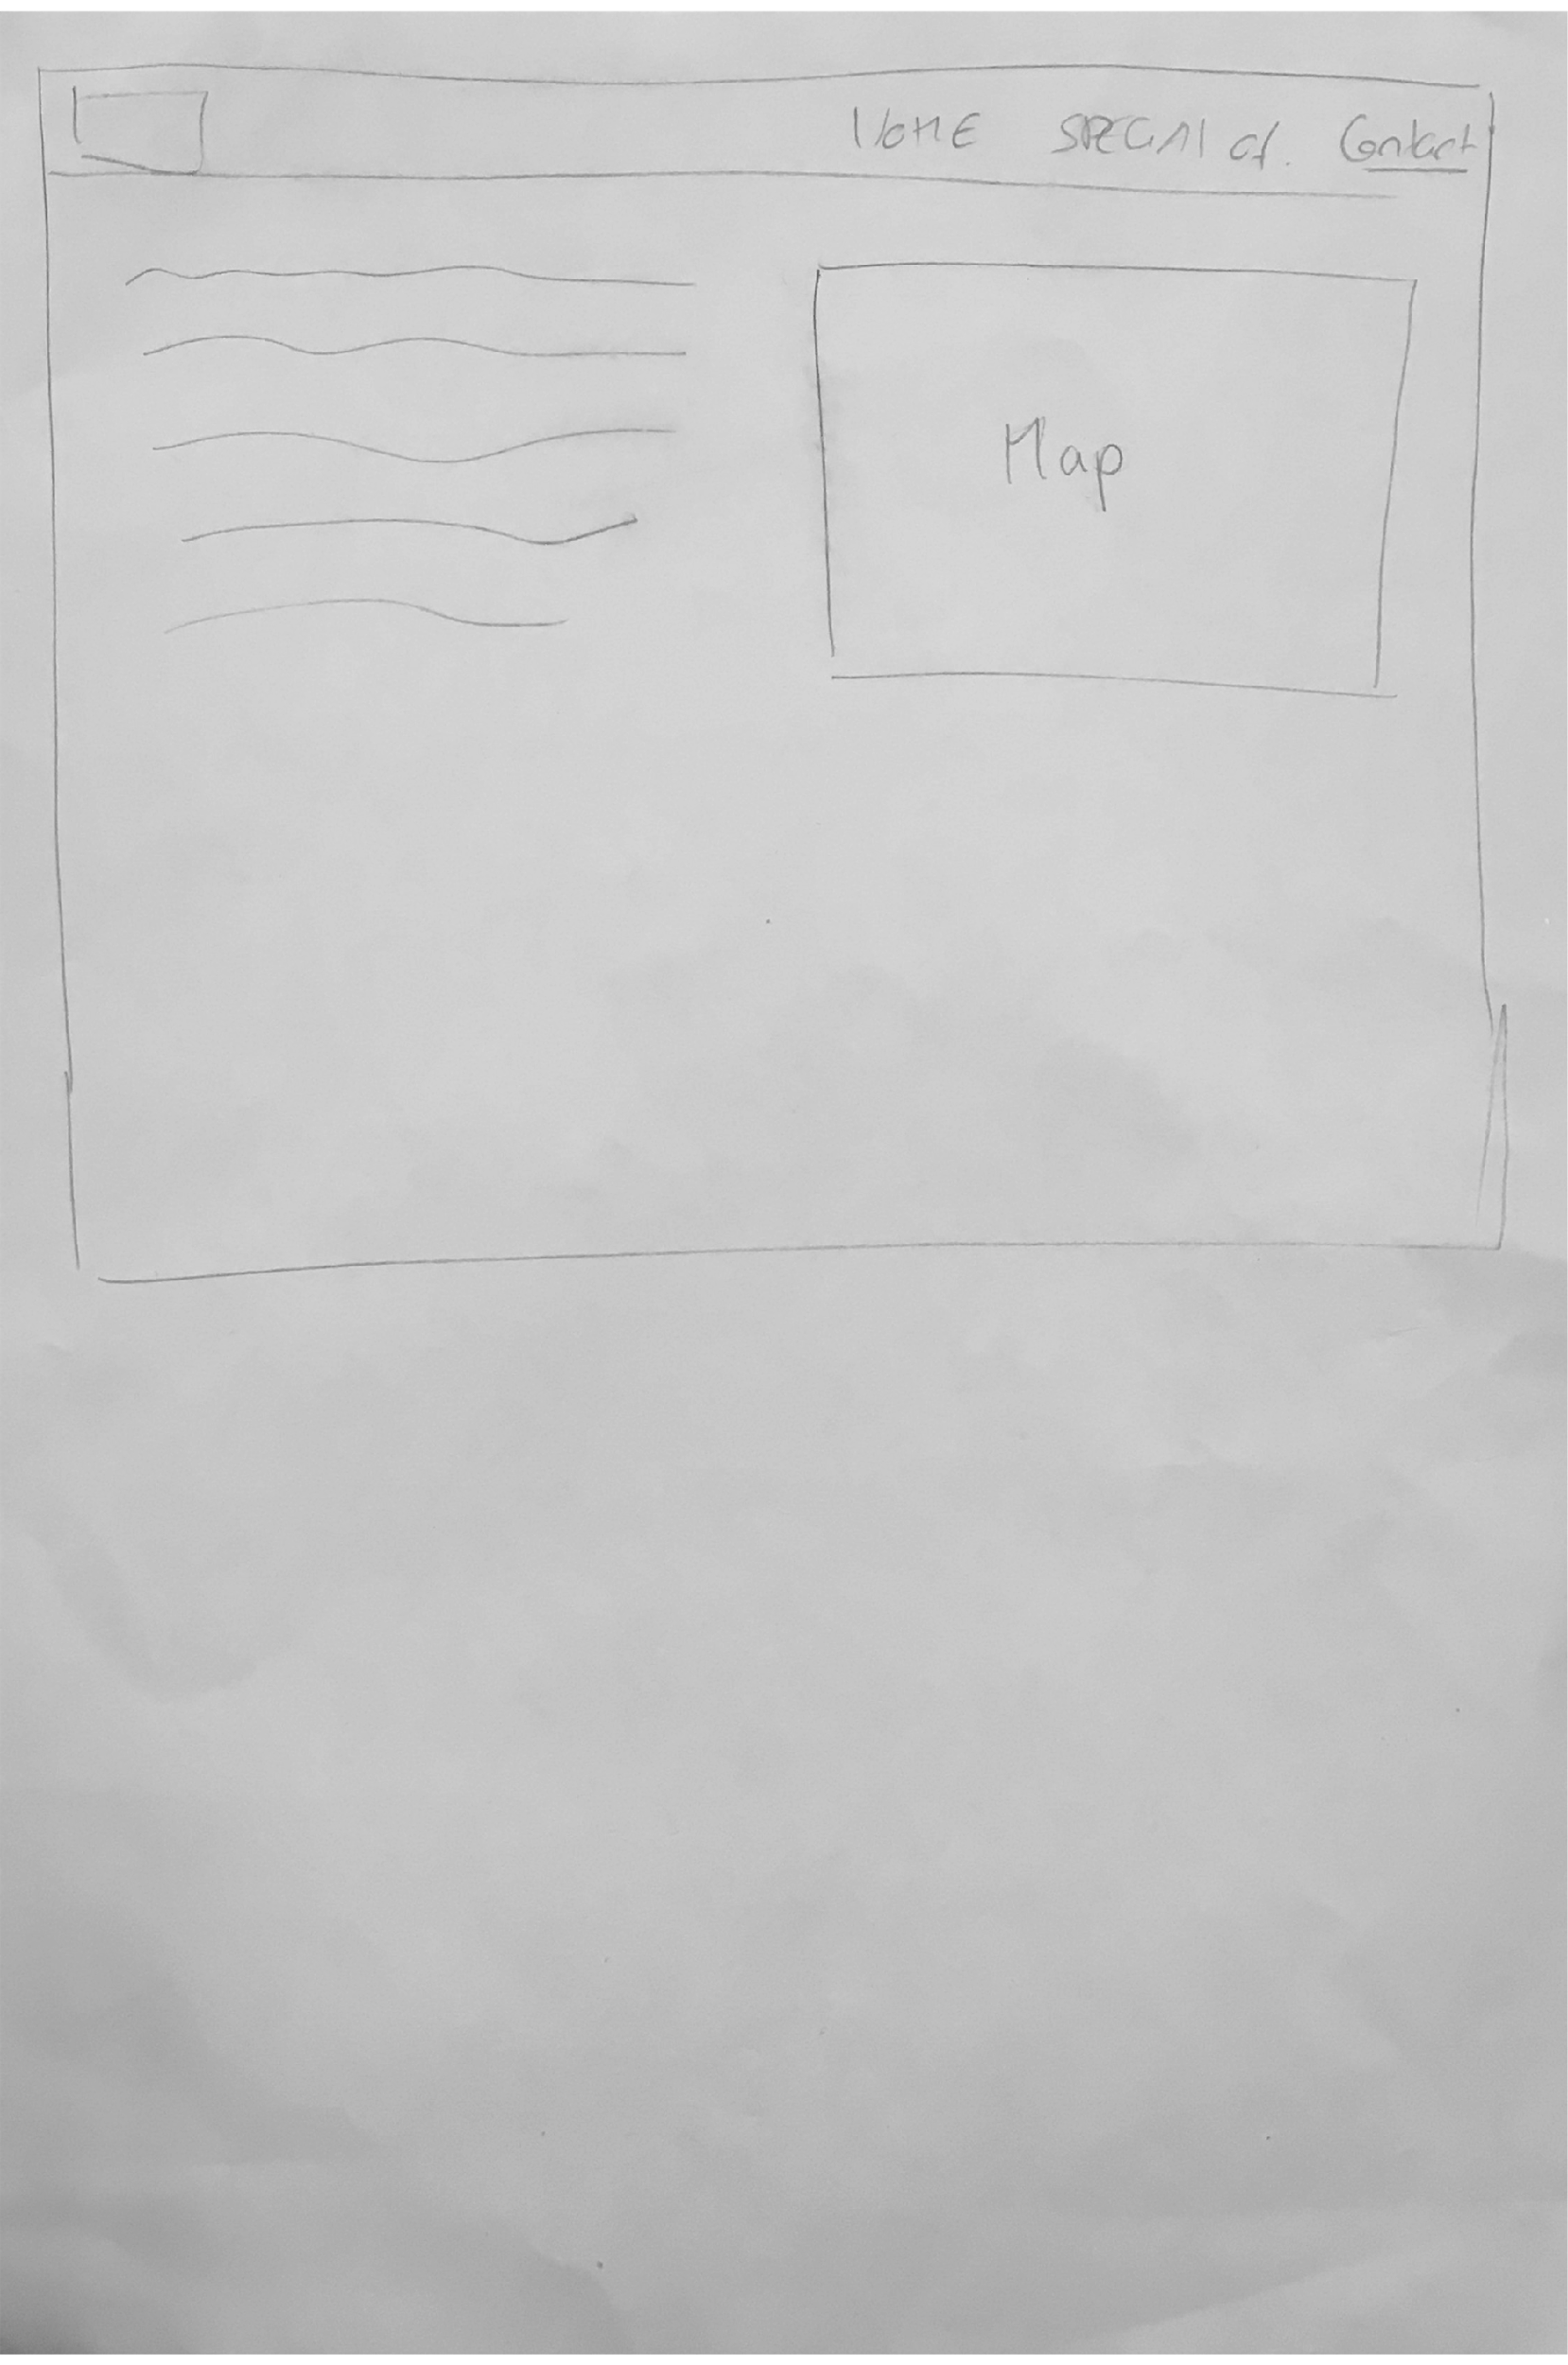 HOME SPECIAl of. Contact
Map